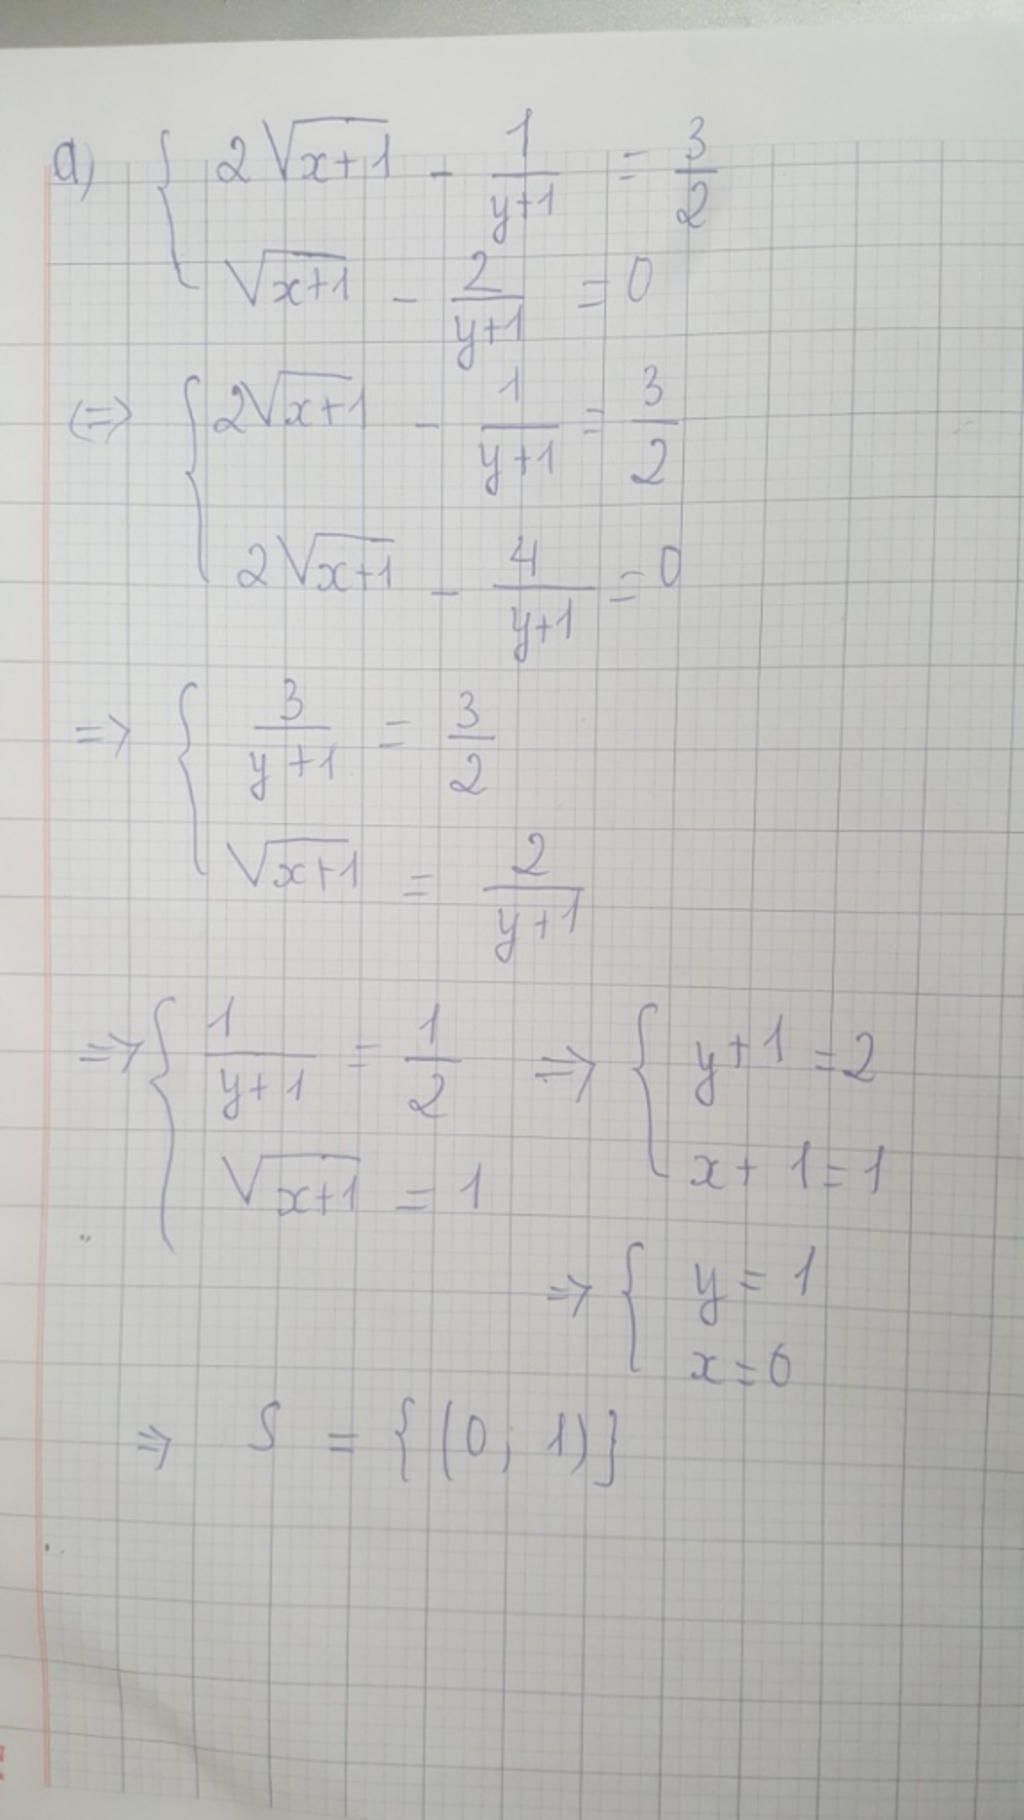 a) { 2√(x+1) - 1/(y+1) = 3/2
√(x+1) - 2/(y+1) = 0
(=> { 2√(x+1) - 1/(y+1) = 3/2
2√(x+1) - 4/(y+1) = 0
=> { 3/(y+1) = 3/2
√(x+1) = 2/(y+1)
=> { 1/(y+1) = 1/2 => { y+1 = 2
√(x+1) = 1 x+1 = 1
=> { y = 1
x = 0
=> S = {(0; 1)}